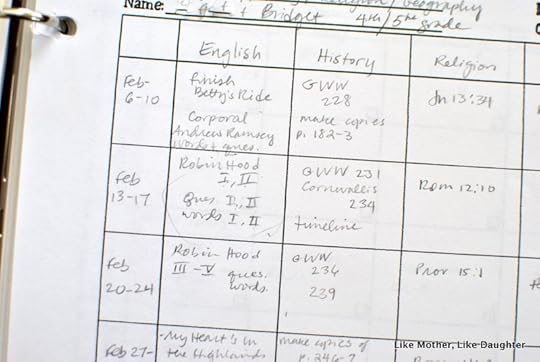 Religion/Geography
Name: + Bridget 4th/5th grade
English
History
Religion
Feb-
6-10
finish
Betty's Ride
Corporal
Andrew Ramsey
words + ques.
GWW
228
make copies
p. 182-3
Jn 13:34
Feb
13-17
Robin Hood
I, II
Ques. I, II
words I, II
GWW 231
Cornwallis
234
timeline
Rom 12:10
Feb
20-24
Robin Hood
III - V ques.
words.
GWW
236
239
Prov 15:1
Feb 27-
-My Heart's in
the Highlands
make copies of
p. 246-7
Like Mother, Like Daughter